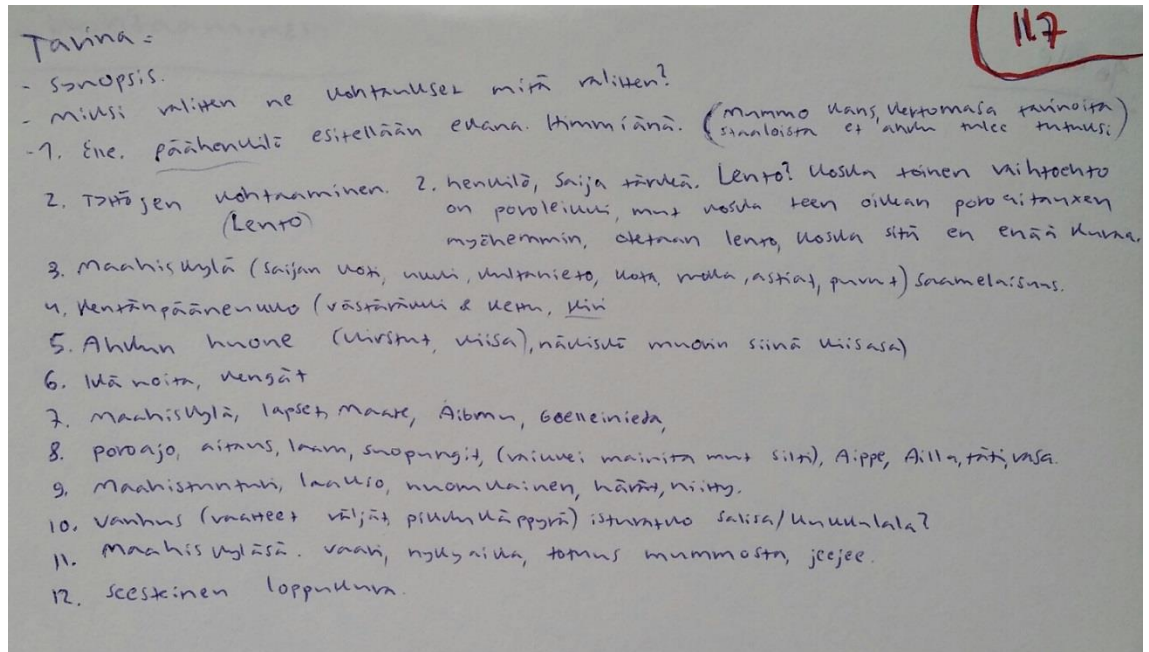 11.7
Tarina =
- synopsis.
- miksi valitten ne kohtaukset mitä valitten?
- 1. Elle. päähenkilö esitellään ekana. Himmiänä. (mummo kans, kertomasa tarinoita
staaloista et ahku tulee tutuksi)
2. Tyttöjen kohtaaminen. 2. henkilö, Saija tärkeä. Lento? Koska toinen vaihtoehto
(Lento) on poroleikki, mut koska teen oikean poroaitauxen
myöhemmin, otetaan lento, koska sitä en enää kuvaa.
3. Maahiskylä (Saijan koti, kukki, kultanieto, kota, malla, astiat, purnut) saamelaisuus.
4. Kentänpäänenukko (västäräkki & kettu, kivi
5. Ahkun huone (kirstut, kiisa), näkiskö muorin siinä kiisasa)
6. Ikä noita, kengät
7. Maahiskylä, lapset, Maare, Áibmu, Golleinieda,
8. poroajo, aitaus, laam, suopungit, (vaikkei mainita mut silti), Aippe, Ailla, täti, vasa.
9. Maahistunturi, laakso, nuorukainen, härät, niitty.
10. vanhus (vaatteet väljät, pikkukäppyrä) isturatko salisa/kukkulala?
11. Maahiskyläsä. vaari, nykyaika, totuus mummosta, jeejee.
12. seesteinen loppukuva.